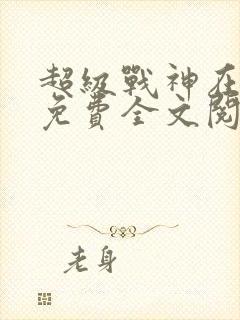 超级戰神在
免費全文閱
老身